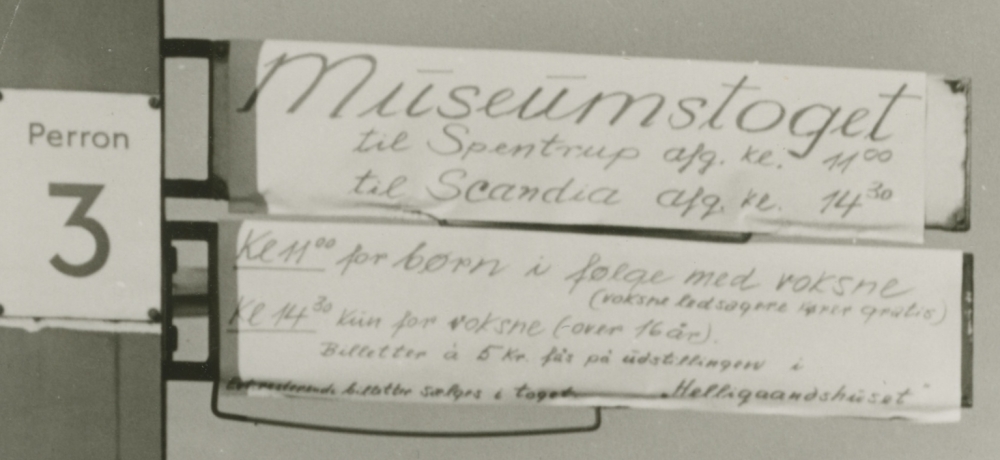 Perron
3
Museumstoget
til Spentrup afg. kl. 11⁰⁰
til Scandia afg. kl. 14³⁰
Kl 11⁰⁰ for børn i følge med voksne
(voksne ledsagere kører gratis)
Kl 14³⁰ kun for voksne (-over 16 år).
Billetter à 5 kr. fås på udstillingen i
"Helligaandshuset"
billetter sælges i toget